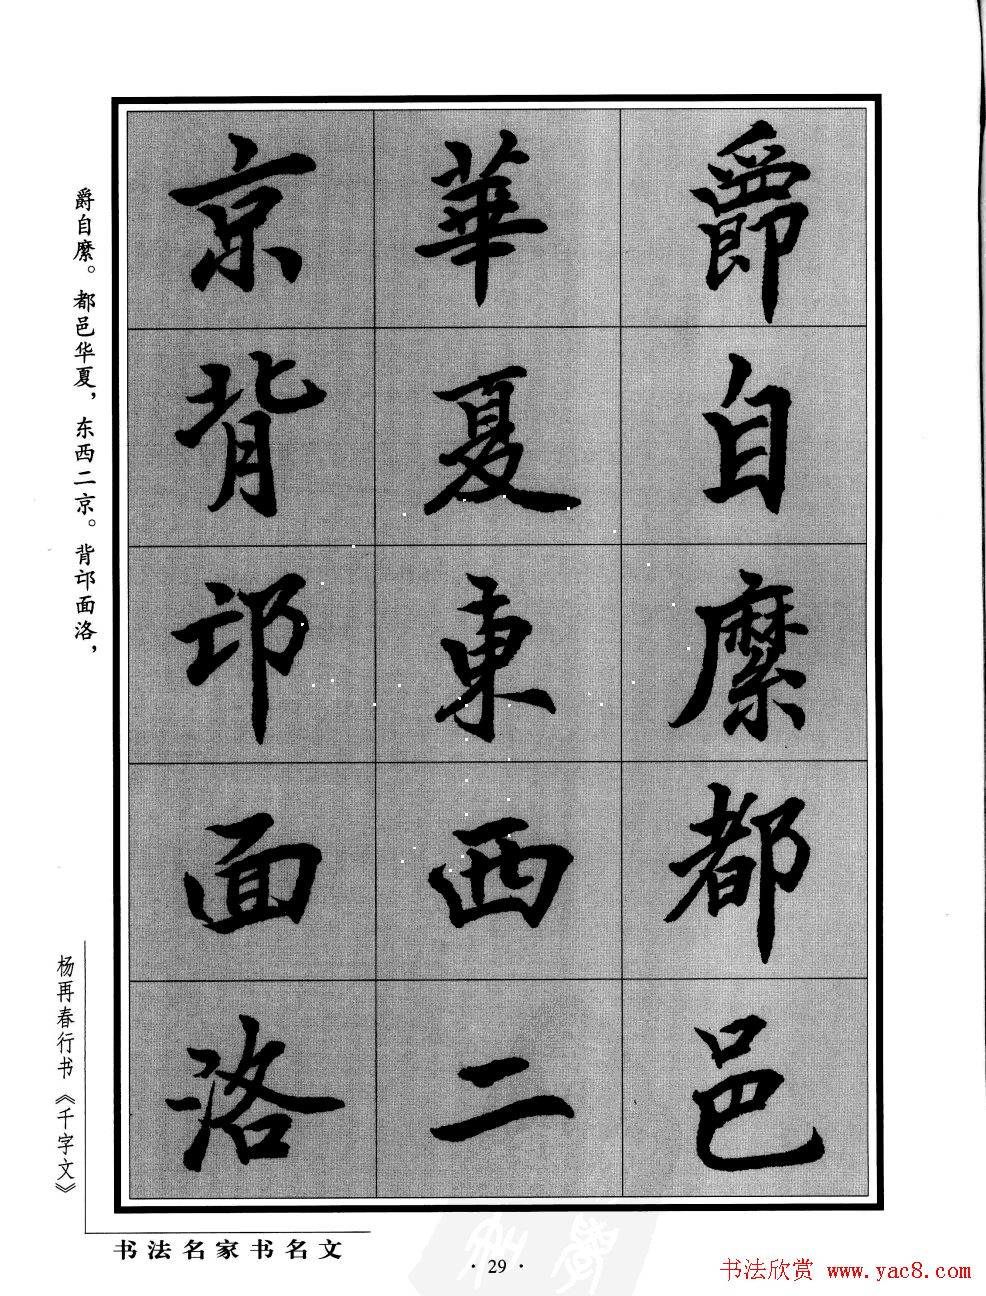 爵自縻都邑
華夏東西二
京背邙面洛
爵自縻。都邑华夏，东西二京。背邙面洛，
杨再春行书《千字文》
书法名家书名文
·29·
书法欣赏 www.yac8.com